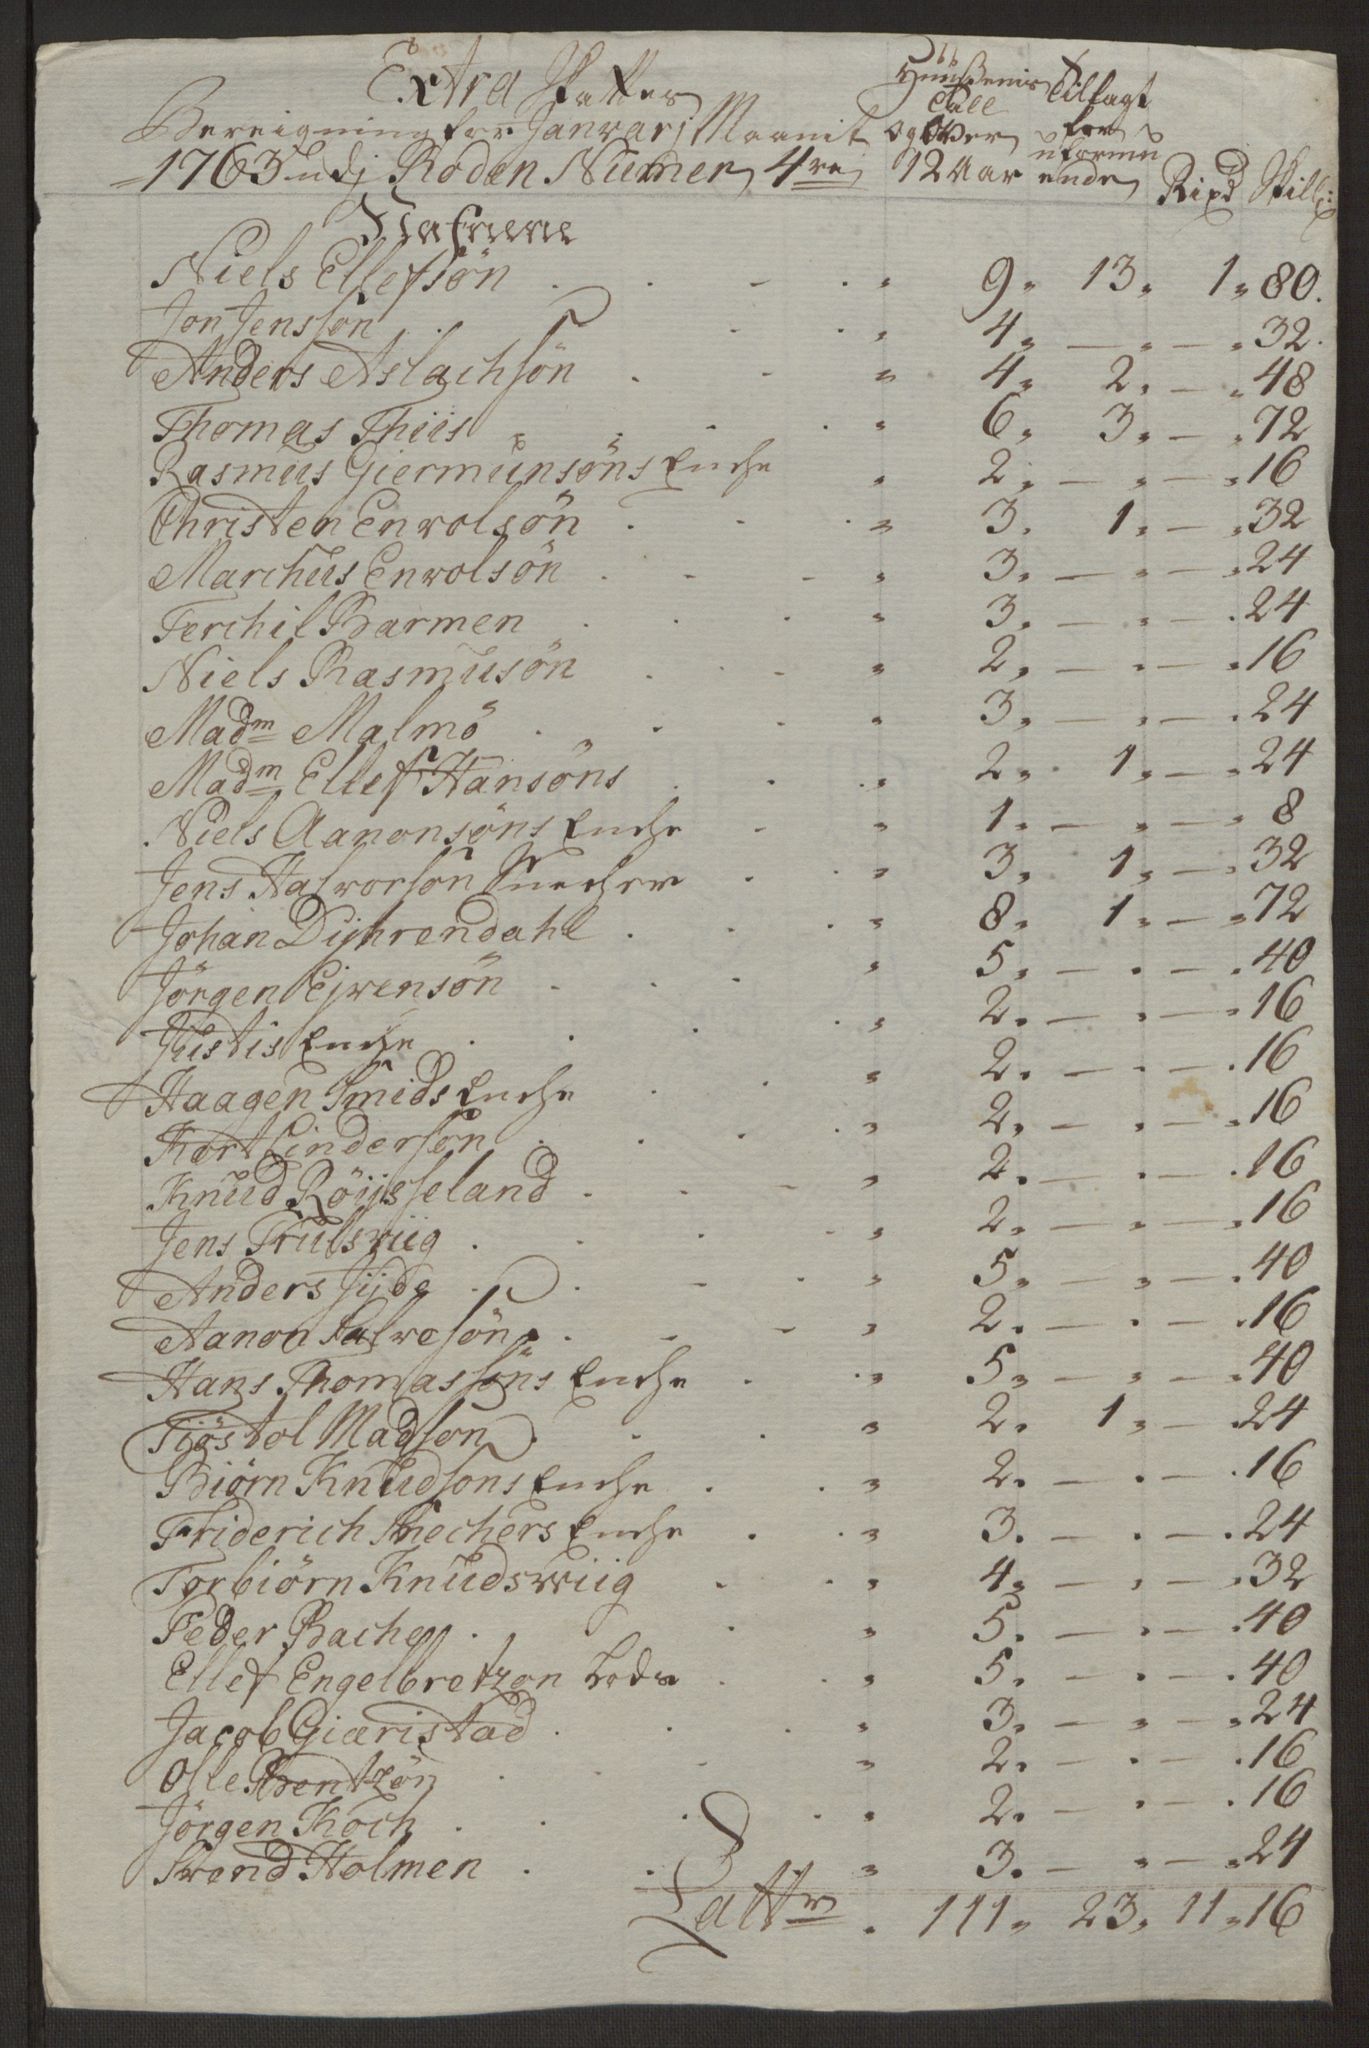 Extra Skatter
Bereigning for Janvarj Maanit
1763 udj Roden Numer 4re
Hüüßenis Tall og over 12 Aar
Tillagt for uformuende
Rixd Skill:
Nafnene
Niels Ellefsön 9 13 1 80.
Jon Jensson 4 — — 32.
Anders Aslachsön 4 2 — 48
Thomas Thiis 6 3 — 72
Rasmus Giermunsöns Enche 2 — — 16
Christen Envolsön 3 1 — 32
Marchus Envolsön 3 — — 24
Terchil Barmen 3 — — 24
Niels Rasmusön 2 — — 16
Madm Malmö 3 — — 24
Madm Ellef Hansöns 2 1 — 24
Niels Aanonsöns Enche 1 — — 8
Jens Halvorson Snecher 3 1 — 32
Johan Dyhrendahl 8 1 — 72
Jörgen Ejvensön 5 — — 40
Justis Enche 2 — — 16
Haagen Smids Enche 2 — — 16
Kort Cinderson 2 — — 16
Knud Röijsseland 2 — — 16
Jens Trulsviig 2 — — 16
Anders Jijde 5 — — 40
Aanon Salvesön 2 — — 16
Hans Thomassöns Enche 5 — — 40
Tiöstol Madson 2 1 — 24
Biörn Knudsons Enche 2 — — 16
Friderich Snechers Enche 3 — — 24
Torbiörn Knudsviig 4 — — 32
Peder Bache 5 — — 40
Ellef Engelbretzon Lods 5 — — 40
Jacob Giæristad 3 — — 24
Olle Berntzön 2 — — 16
Jörgen Koch 2 — — 16
Svend Holmen 3 — — 24
Lattr 111 23 11 16